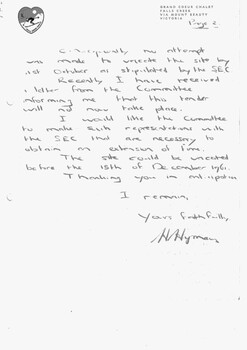 GRAND COEUR CHALET
FALLS CREEK
VIA MOUNT BEAUTY
VICTORIA
Page 2.
Consequently no attempt
was made to vacate the site by
1st October as stipulated by the SEC
Recently I have received
a letter from the Committee
informing me that this tender
will no now take place.
I would like the Committee
to make such representations with
the SEC that are necessary to
obtain an extension of time.
The site could be vacated
before the 15th of December 196
Thanking you in anticipation
I remain,
Yours faithfully,
H Hyman